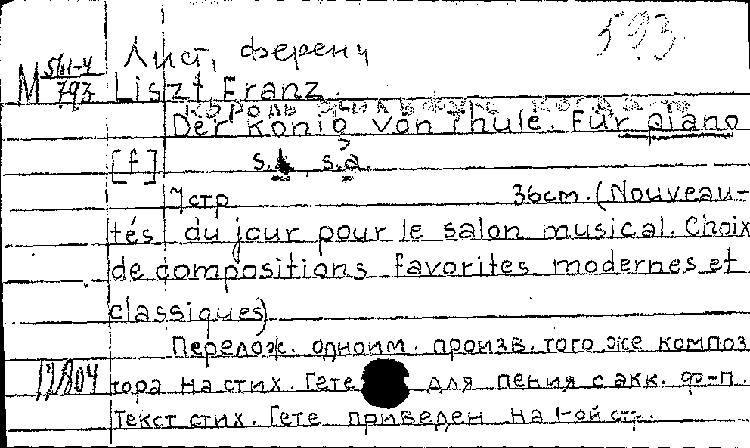 593
М 561-4/793
Лист, Ференц
Liszt, Franz.
Der König von Thule. Für piano
[f] s.l., s.a.
7 стр 36cm. (Nouveau-
tés du jour pour le salon musical. Choix
de compositions favorites modernes et
classiques)
Перелож. одноим. произв. того же композ
тора на стих. Гете для пения с акк. ф-п.
12804
Текст стих. Гете приведен на 1-ой стр.